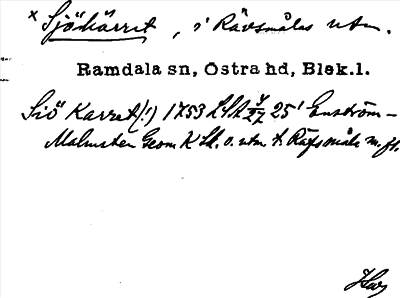 x Sjökärret, i Rävsmålas utm.
Ramdala sn, Östra hd, Blek.l.
Siö Karret(!) 1753 LSA 25' Enström-
Malmsten Geom K ö. utm. t. Räfsmåla m. fl.